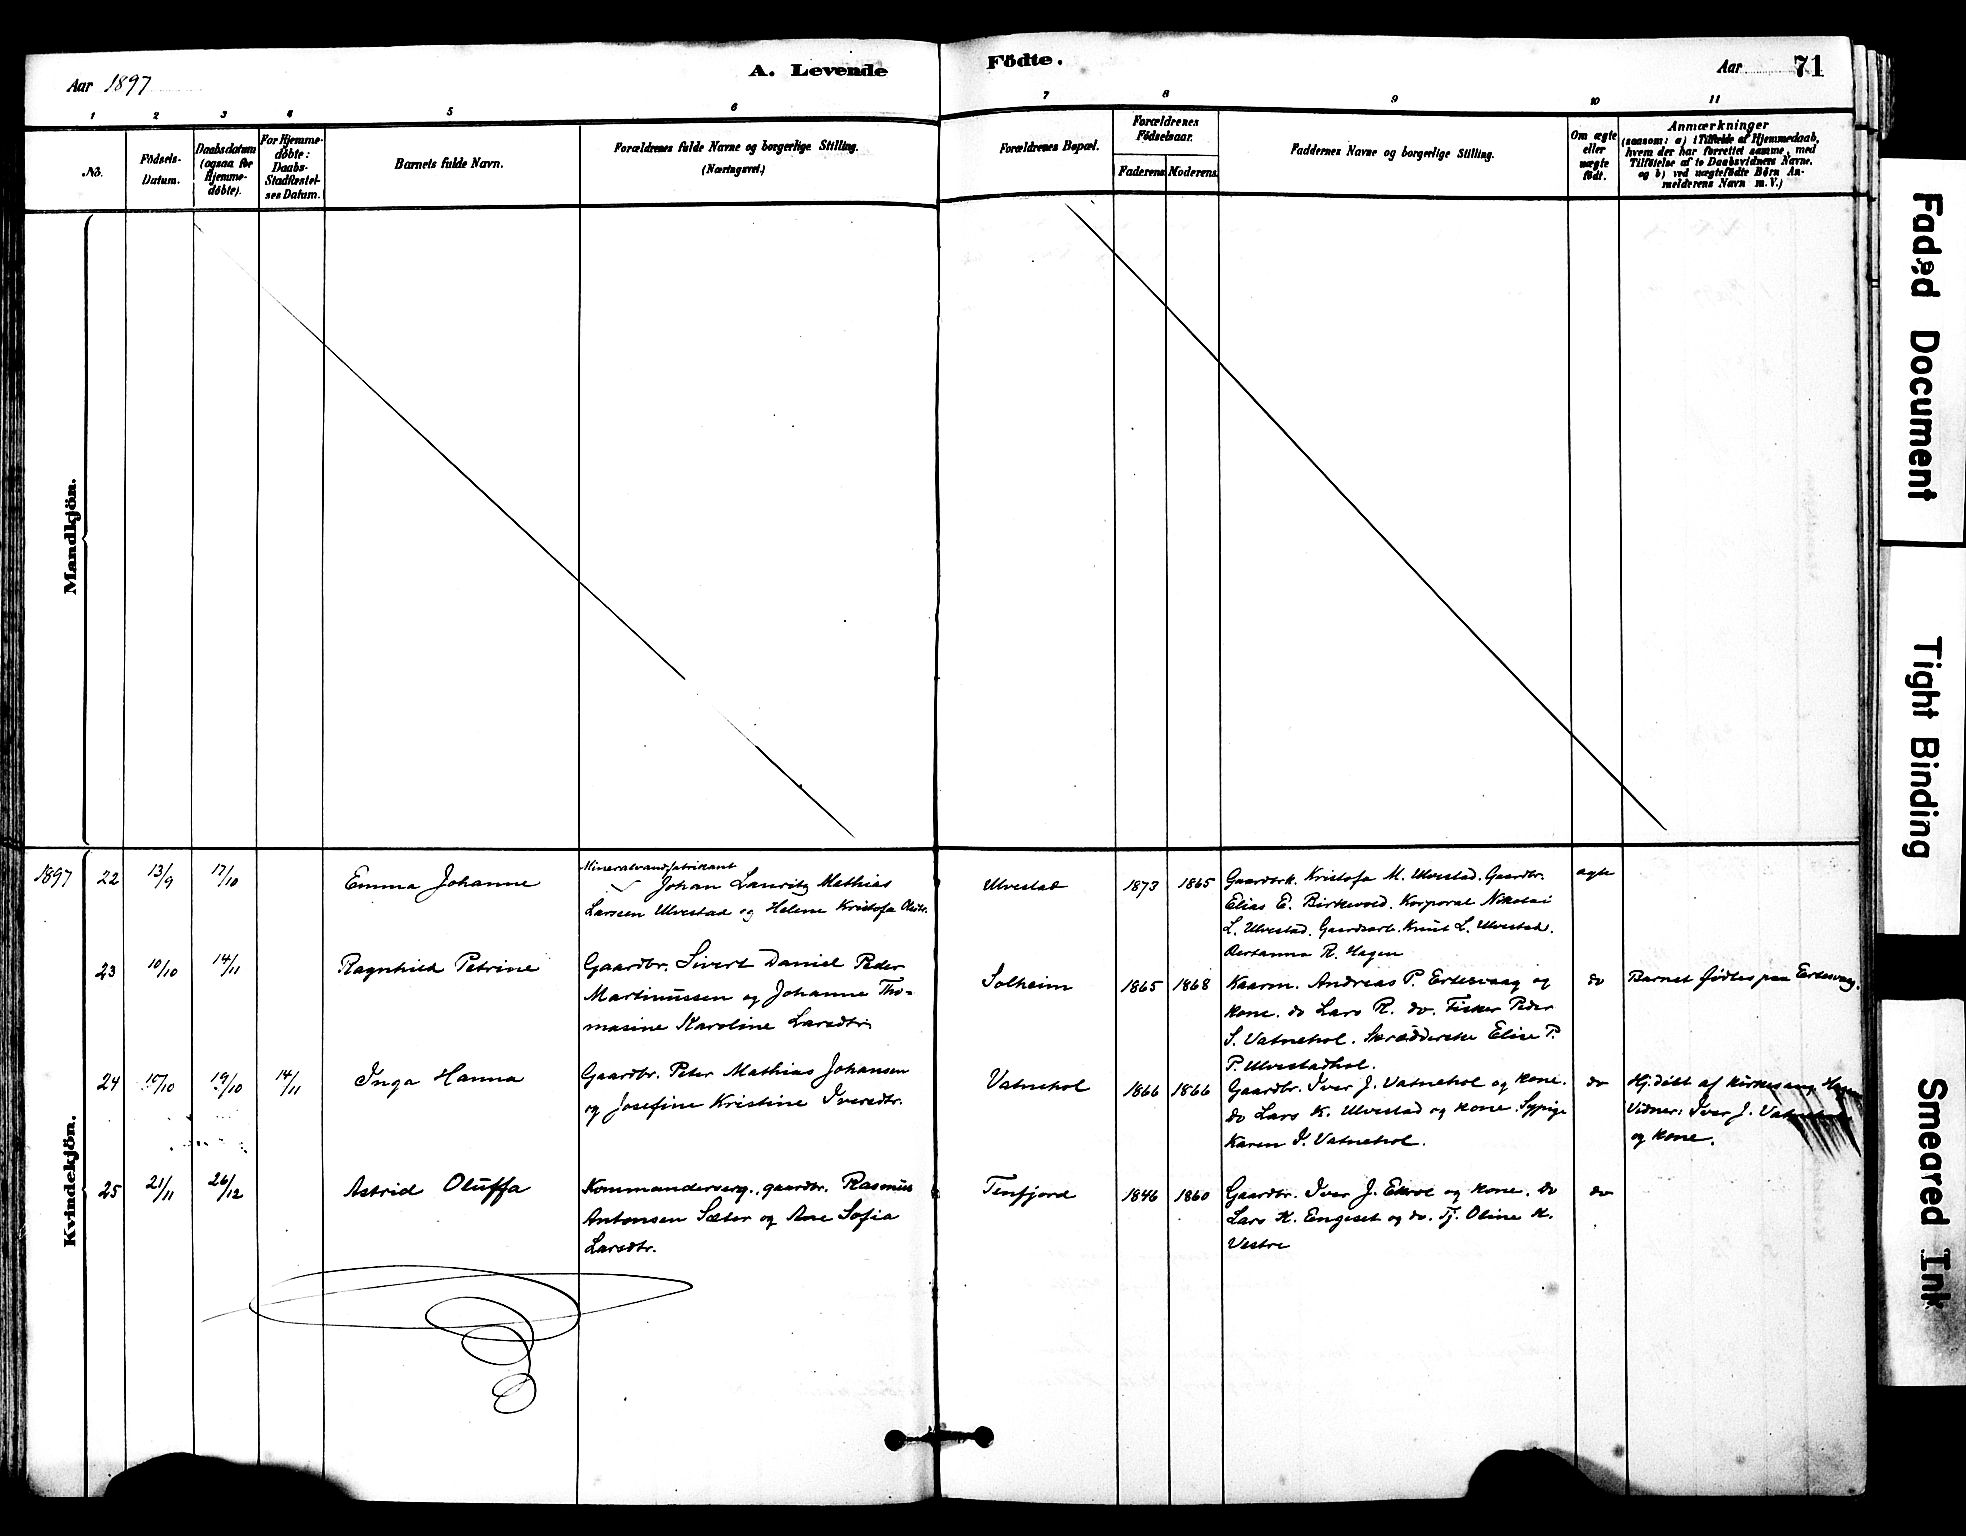 Aar 1897
A. Levende Födte.
Aar 71
1 2 3 4 5 6 7 8 9 10 11
No.
Födsels-Datum.
Daabsdatum (ogsaa for Hjemme-döbte).
For Hjemme-döbte: Daabs-Stadfæstel-ses Datum.
Barnets fulde Navn.
Forældrenes fulde Navne og borgerlige Stilling.
(Næringsvei.)
Forældrenes Bopæl.
Forældrenes Födselsaar.
Faderens Moderens
Faddernes Navne og borgerlige Stilling.
Om ægte eller uægte födt.
Anmærkninger
(saasom: a) i Tilfælde af Hjemmedaab,
hvem der har forrettet samme, med
Tilföielse af to Daabsvidners Navne,
og b) ved uægtefödte Börn An-
melderens Navn m. V.)
Mandkjön.
Kvindekjön.
1897 22 13/9 17/10 Emma Johanne
Mineralvandfabrikant
Johan Lauritz Mathias
Larssen Ulvestad og Helene Kristofa Olsdtr.
Ulvestad 1873 1865
Gaardbrk. Kristofa M. Ulvestad. Gaardbr.
Elias E. Birkevold. Korporal Nikolai
L. Ulvestad. Gaardsarb. Knut L. Ulvestad.
R. Hagen
ægte
23 10/10 14/11 Ragnhild Petrine
Gaardbr. Sivert Daniel Peder
Martinussen og Johanne Tho-
masine Karoline Larsdtr.
Solheim 1865 1868
Kaarm. Andreas P. Ertesvaag og
kone. do Lars R. do. Fisker Peder
S. Vatnehol. Skrædderske Elise P.
P. Ulvestadhol.
do
Barnet fødtes paa Ertesvaag.
24 15/10 19/10 14/11 Inga Hanna
Gaardbr. Peter Mathias Johansen
og Josefine Kristine Iversdtr.
Vatnehol 1866 1866
Gaardbr. Iver J. Vatnehol og kone.
do Lars K. Ulvestad og kone. Sypige
Karen I. Vatnehol.
do
Hj.døbt af kirkesang.
Vidner: Iver J. Vatnehol
og kone.
25 21/11 26/12 Astrid Oluffa
Kommanderserg., gaardbr. Rasmus
Antonsen Sæter og Ane Sofia
Larsdtr.
Tenfjord 1846 1860
Gaardbr. Iver J. Ekroe og kone. do
Lars K. Engeset og do. Tj. Oline K.
Vestre
do
Faded Document
Tight Binding
Smeared Ink